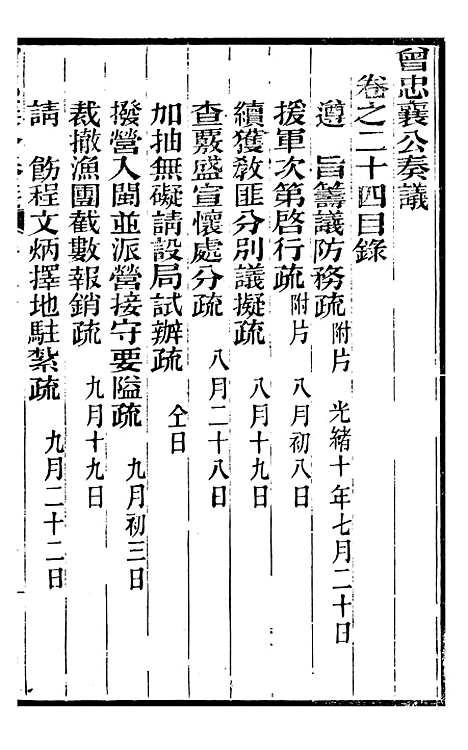 曾忠襄公奏議
卷之二十四目錄
遵　旨籌議防務疏 附片 光緒十年七月二十日
援軍次第啓行疏 附片 八月初八日
續獲教匪分別議擬疏 八月十九日
查覈盛宣懷處分疏 八月二十八日
加抽無礙請設局試辦疏 仝日
撥營入閩並派營接守要隘疏 九月初三日
裁撤漁團截數報銷疏 九月十九日
請　飭程文炳擇地駐紮疏 九月二十二日